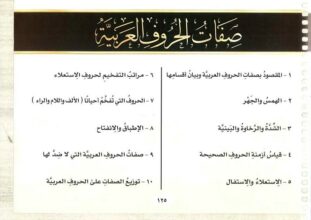 صِفَاتُ الحُرُوفِ العَرَبِيَّة
١ - المقصودُ بصفاتِ الحروفِ العربيَّة وبيانُ أقسامِها
٢ - الهمسُ والجَهْر
٣ - الشِّدَّةُ والرَّخاوةُ والبَينيَّة
٤ - قياسُ أزمنةِ الحروفِ الصحيحة
٥ - الاستعلاءُ والاستفال
٦ - مراتبُ التفخيمِ لحروفِ الاستعلاء
٧ - الحروفُ التي تُفخَّمُ أحيانًا ( الألف واللام والراء )
٨ - الإطباقُ والانفتاح
٩ - صفاتُ الحروفِ العربيَّةِ التي لا ضِدَّ لها
١٠ - توزيعُ الصفاتِ على الحروفِ العربيَّة
١٢٥